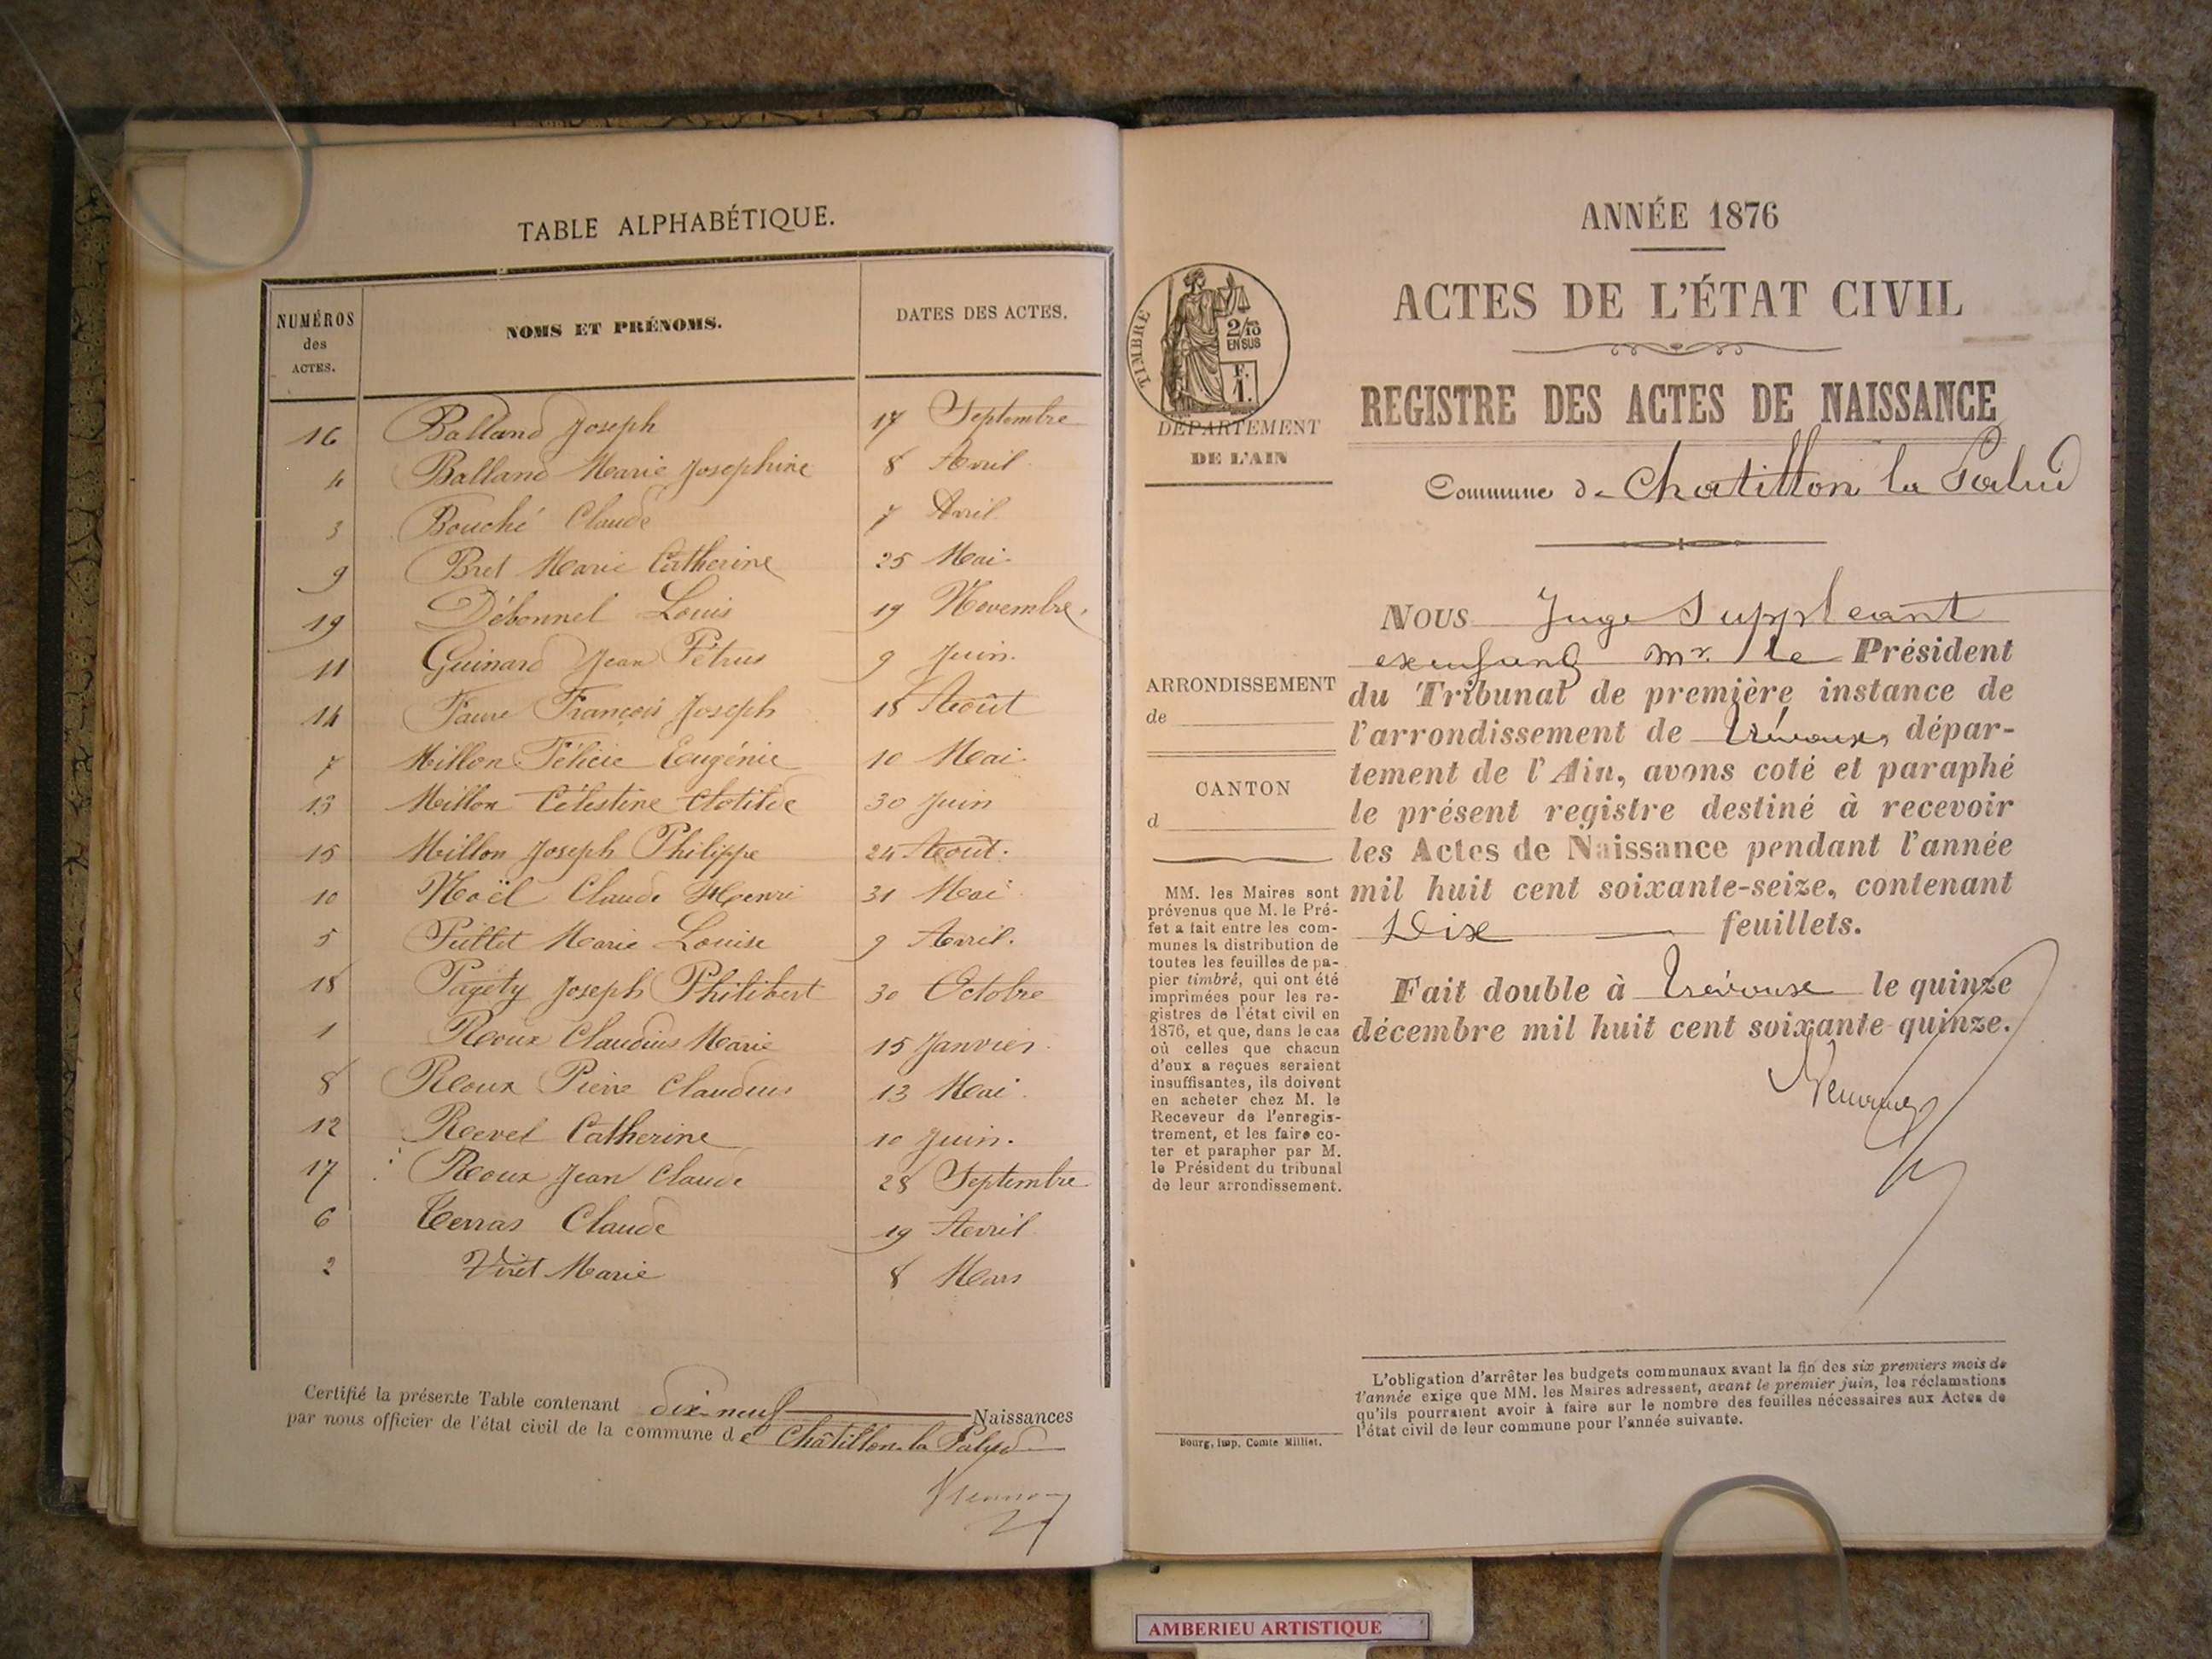 TABLE ALPHABÉTIQUE.
NUMÉROS des ACTES.
NOMS ET PRÉNOMS.
DATES DES ACTES.
16 Balland Joseph 17 Septembre
4 Balland Marie Josephine 8 Avril
3 Bouché Claude 7 Avril
9 Bret Marie Catherine 25 Mai
19 Débonnel Louis 19 Novembre
11 Guinard Jean Pétrus 9 Juin
14 Faure François Joseph 18 Août
7 Millon Félicie Eugénie 10 Mai
13 Millon Célestine Clotilde 30 Juin
15 Millon Joseph Philippe 24 Août
10 Noël Claude Henri 31 Mai
5 Pillet Marie Louise 9 Avril
18 Pagéty Joseph Philibert 30 Octobre
1 Roux Claudius Marie 15 Janvier
8 Roux Pierre Claudius 13 Mai
12 Revel Catherine 10 Juin
17 Roux Jean Claude 28 Septembre
6 Terras Claude 19 Avril
2 Viret Marie 8 Mars
Certifié la présente Table contenant dix-neuf Naissances
par nous officier de l'état civil de la commune de Châtillon la Palud
ANNÉE 1876
ACTES DE L'ÉTAT CIVIL
REGISTRE DES ACTES DE NAISSANCE
Commune de Chatillon la Palud
TIMBRE
2/10
EN SUS
F.
1.
DÉPARTEMENT
DE L'AIN
ARRONDISSEMENT
de
CANTON
d
MM. les Maires sont
prévenus que M. le Pré-
fet a fait entre les com-
munes la distribution de
toutes les feuilles de pa-
pier timbré, qui ont été
imprimées pour les re-
gistres de l'état civil en
1876, et que, dans le cas
où celles que chacun
d'eux a reçues seraient
insuffisantes, ils doivent
en acheter chez M. le
Receveur de l'enregis-
trement, et les faire co-
ter et parapher par M.
le Président du tribunal
de leur arrondissement.
Bourg, Imp. Comte Milliet.
NOUS Juge Suppleant
Mr. le Président
du Tribunal de première instance de
l'arrondissement de Trévoux, dépar-
tement de l'Ain, avons coté et paraphé
le présent registre destiné à recevoir
les Actes de Naissance pendant l'année
mil huit cent soixante-seize, contenant
Dix feuillets.
Fait double à Trévoux le quinze
décembre mil huit cent soixante-quinze.
L'obligation d'arrêter les budgets communaux avant la fin des six premiers mois de
l'année exige que MM. les Maires adressent, avant le premier juin, les réclamations
qu'ils pourraient avoir à faire sur le nombre des feuilles nécessaires aux Actes de
l'état civil de leur commune pour l'année suivante.
AMBERIEU ARTISTIQUE